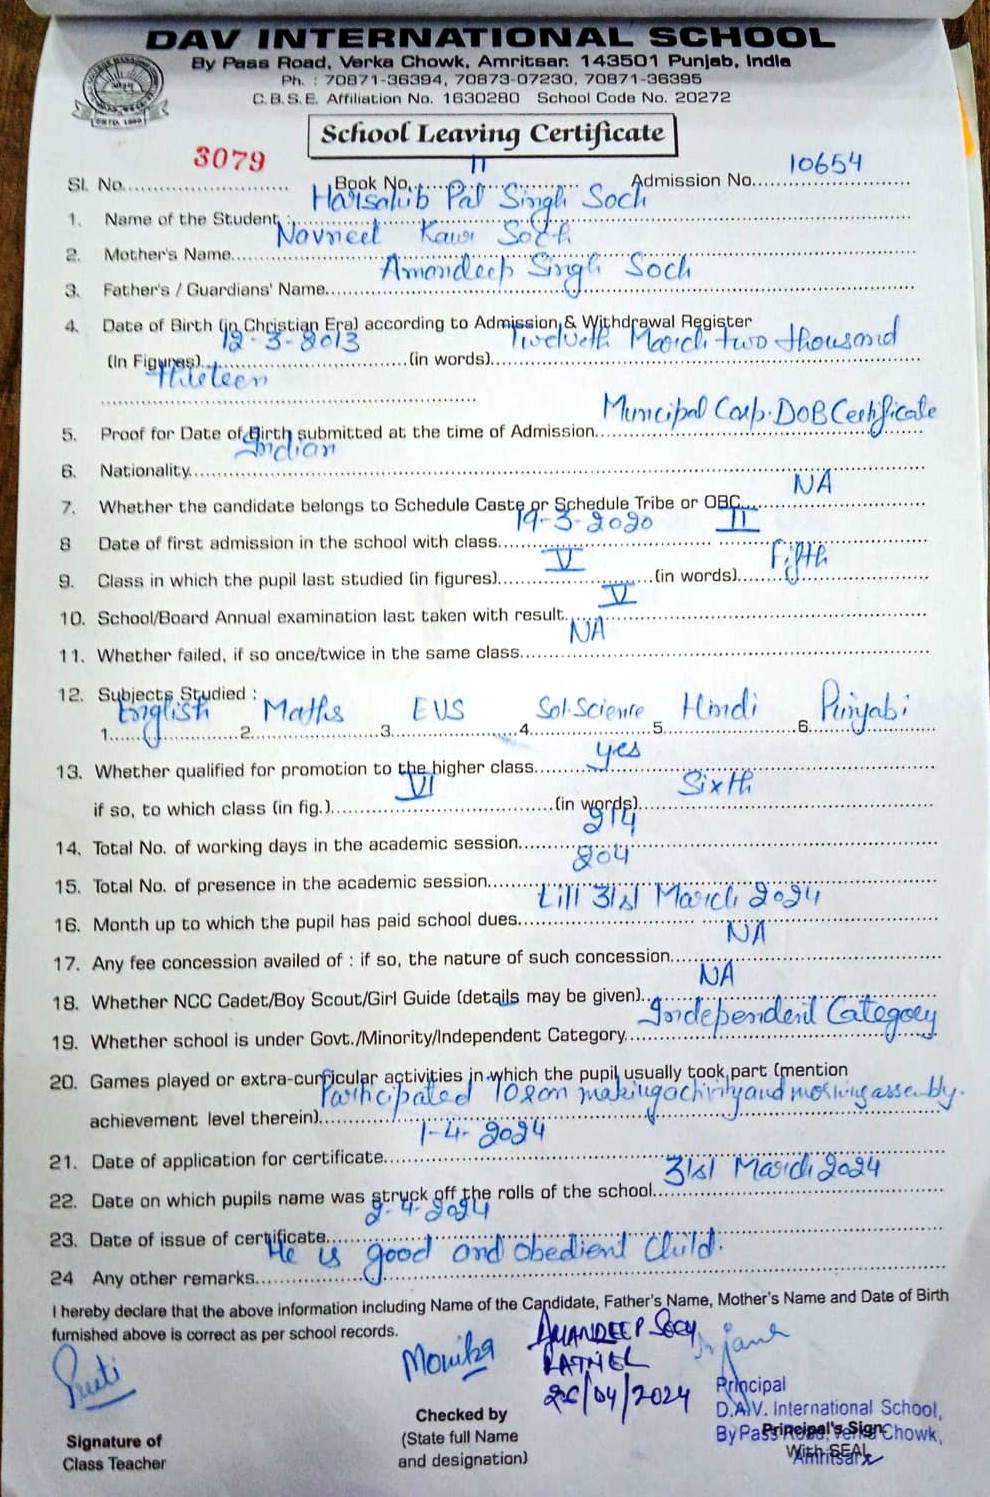 DAV INTERNATIONAL SCHOOL
By Pass Road, Verka Chowk, Amritsar. 143501 Punjab, India
Ph. : 70871-36394, 70873-07230, 70871-36395
C.B.S.E. Affiliation No. 1630280 School Code No. 20272
ESTD. 1990
School Leaving Certificate
Sl. No. 3079 Book No. 11 Admission No. 10654
1. Name of the Student : Harsahib Pal Singh Soch
2. Mother's Name Navneet Kaur Soch
3. Father's / Guardians' Name Amandeep Singh Soch
4. Date of Birth (in Christian Era) according to Admission & Withdrawal Register
(In Figures) 12-3-2013 (in words) Twelveth March two thousand
Thirteen
5. Proof for Date of Birth submitted at the time of Admission Muncipal Corp. DOB Certificate
6. Nationality Indian
7. Whether the candidate belongs to Schedule Caste or Schedule Tribe or OBC NA
8 Date of first admission in the school with class 19-3-2020 II
9. Class in which the pupil last studied (in figures) V (in words) Fifth
10. School/Board Annual examination last taken with result V
11. Whether failed, if so once/twice in the same class NA
12. Subjects Studied :
1. English 2. Maths 3. EVS 4. Sol.Science 5. Hindi 6. Punjabi
13. Whether qualified for promotion to the higher class yes
if so, to which class (in fig.) VI (in words) Sixth
14. Total No. of working days in the academic session 214
15. Total No. of presence in the academic session 204
16. Month up to which the pupil has paid school dues till 31st March 2024
17. Any fee concession availed of : if so, the nature of such concession NA
18. Whether NCC Cadet/Boy Scout/Girl Guide (details may be given) NA
19. Whether school is under Govt./Minority/Independent Category Independent Category
20. Games played or extra-curricular activities in which the pupil usually took part (mention
achievement level therein) Participated making activity and morning assembly.
21. Date of application for certificate 1-4-2024
22. Date on which pupils name was struck off the rolls of the school 31st March 2024
23. Date of issue of certificate 2-4-2024
24 Any other remarks He is good and obedient Child.
I hereby declare that the above information including Name of the Candidate, Father's Name, Mother's Name and Date of Birth
furnished above is correct as per school records.
Monika
AMANDEEP SOCH
26/04/2024
Signature of
Class Teacher
Checked by
(State full Name
and designation)
Principal
D.A.V. International School,
By Pass Road, Verka Chowk,
Amritsar
Principal's Sign
With SEAL